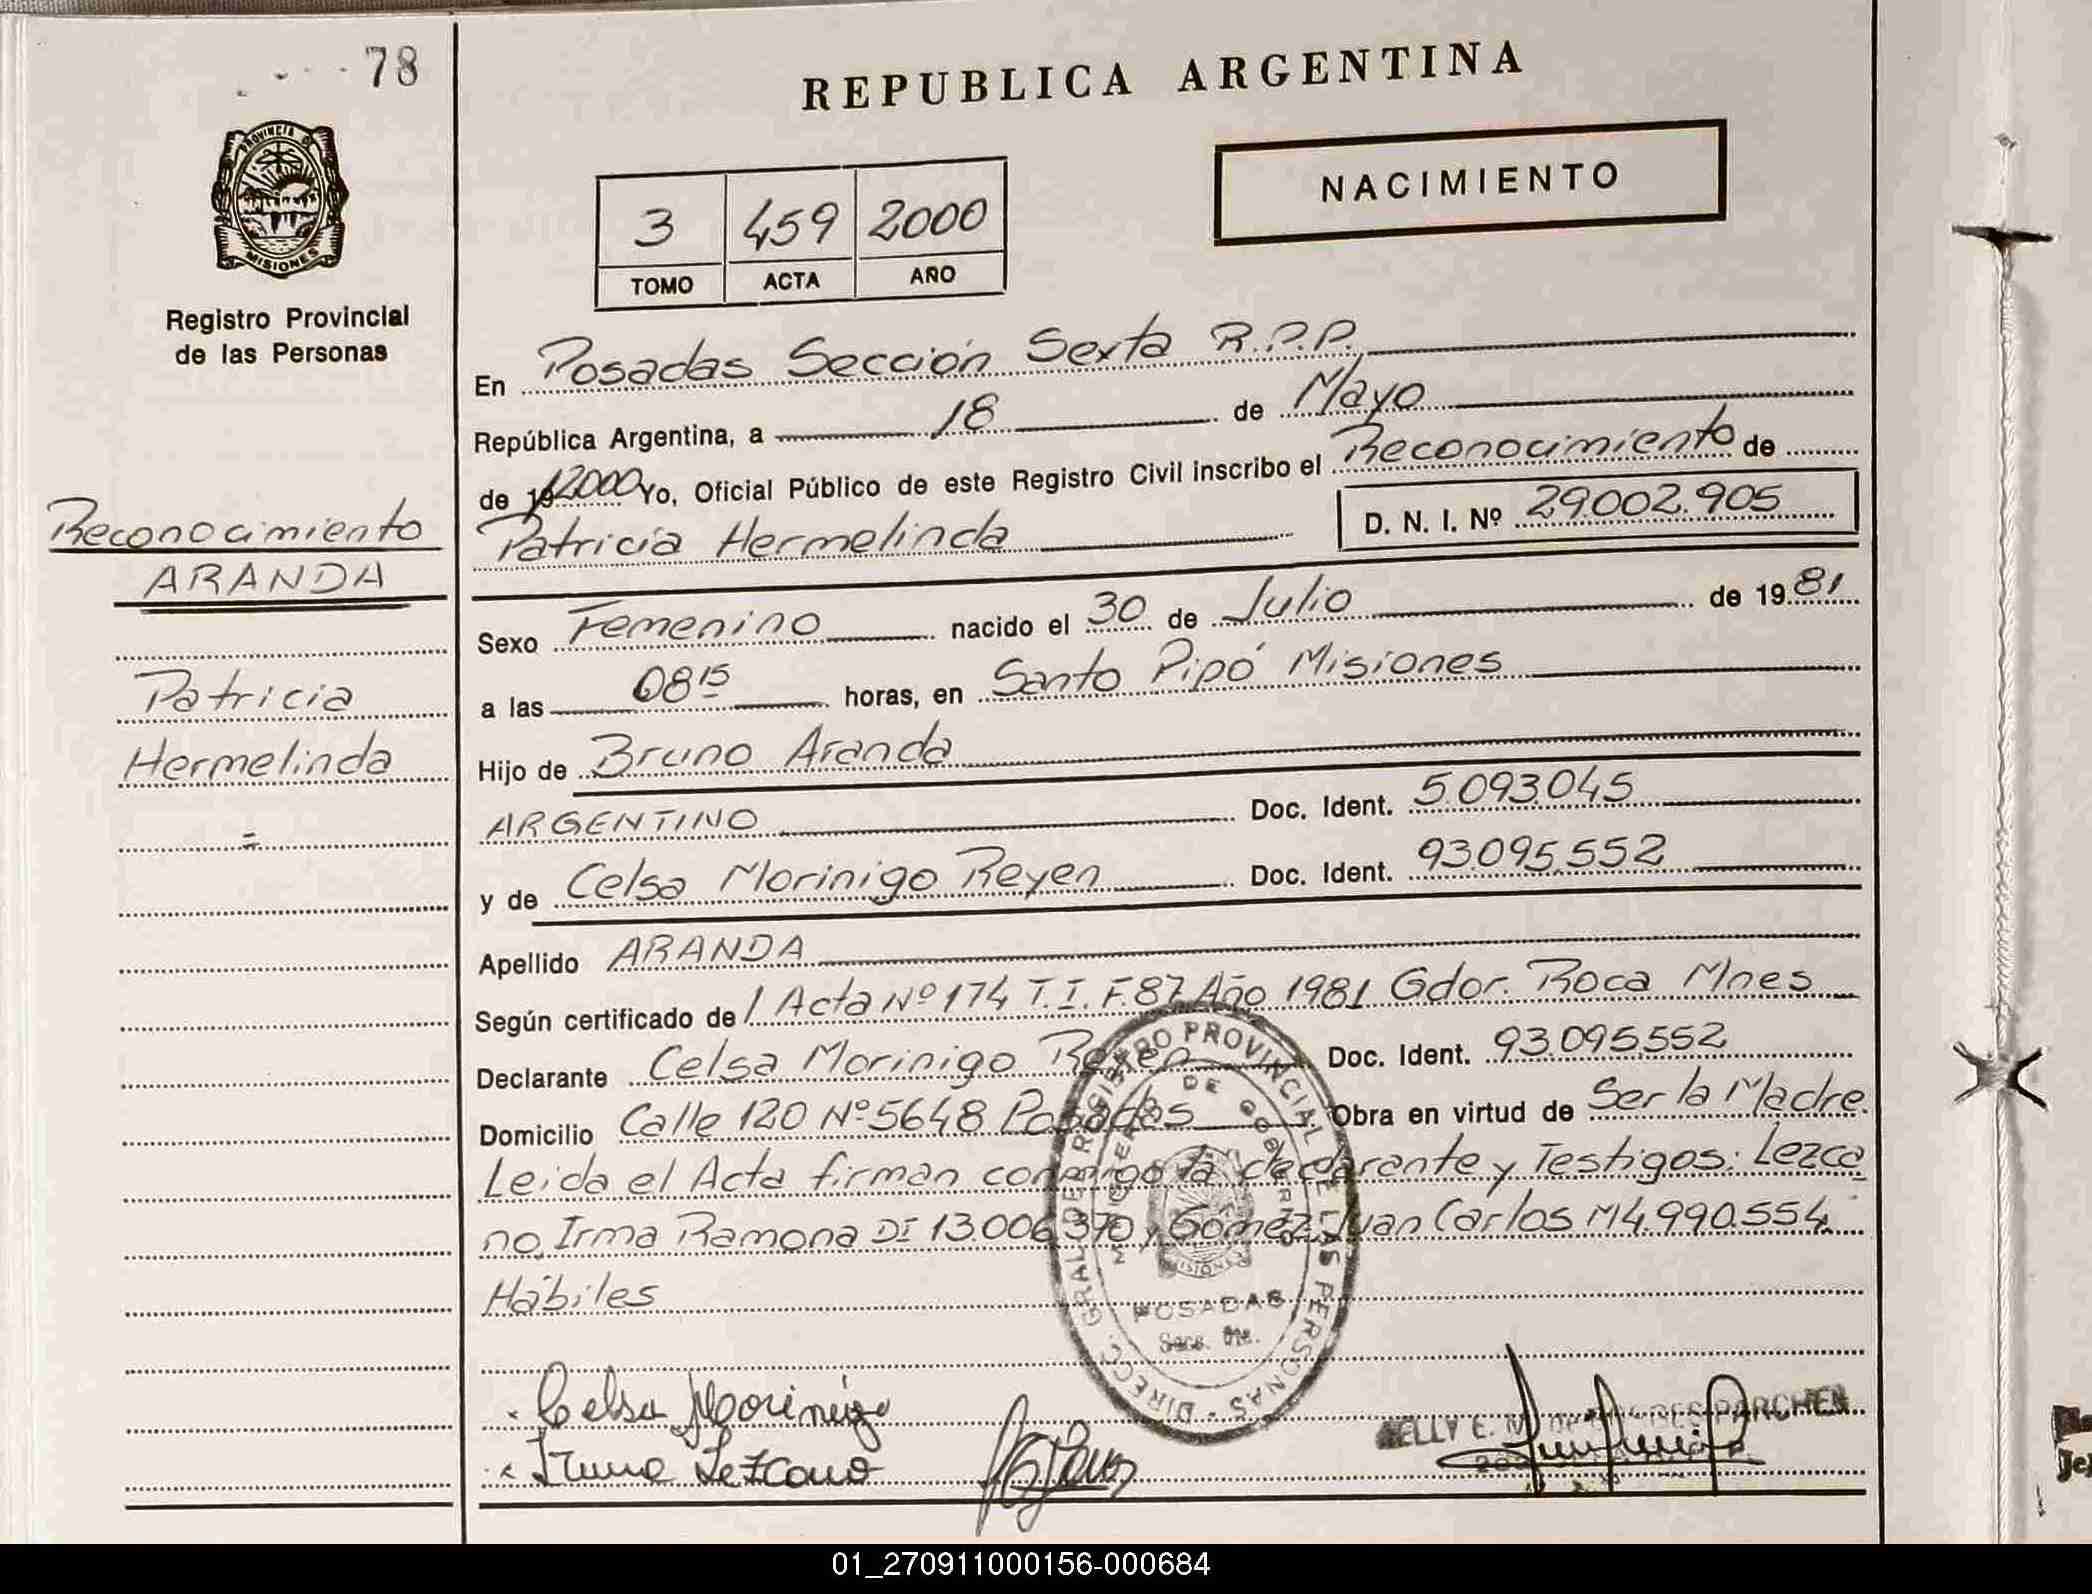 78
PROVINCIA DE
MISIONES
Registro Provincial
de las Personas
Reconocimiento
ARANDA
Patricia
Hermelinda
=
REPUBLICA ARGENTINA
NACIMIENTO
3 459 2000
TOMO ACTA AÑO
En Posadas Sección Sexta R.P.P.
República Argentina, a 18 de Mayo
de 2000 Yo, Oficial Público de este Registro Civil inscribo el Reconocimiento de
Patricia Hermelinda D. N. I. Nº 29.002.905
Sexo Femenino nacido el 30 de Julio de 1981
a las 08 15 horas, en Santo Pipó Misiones
Hijo de Bruno Aranda
ARGENTINO Doc. Ident. 5.093.045
y de Celsa Morinigo Reyen Doc. Ident. 93.095.552
Apellido ARANDA
Según certificado de / Acta Nº 174 T.I. F.87 Año 1981 Gdor. Roca Mnes
Declarante Celsa Morinigo Reyen Doc. Ident. 93.095.552
Domicilio Calle 120 Nº 5648 Posadas Obra en virtud de Ser la Madre.
Leida el Acta firman conmigo la declarante y Testigos: Lezca
no, Irma Ramona DI 13.006.370 y Gómez Juan Carlos M4.990.554
Hábiles
DIRECC. GRAL. DEL REGISTRO PROVINCIAL DE LAS PERSONAS
MINISTERIO DE GOBIERNO
MISIONES
POSADAS
Celsa Morinigo
Irma Lezcano
PARCHEN
01_270911000156-000684